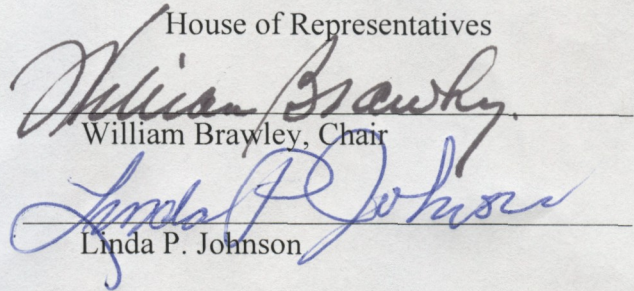 House of Representatives
William Brawley
William Brawley, Chair
Linda P Johnson
Linda P. Johnson